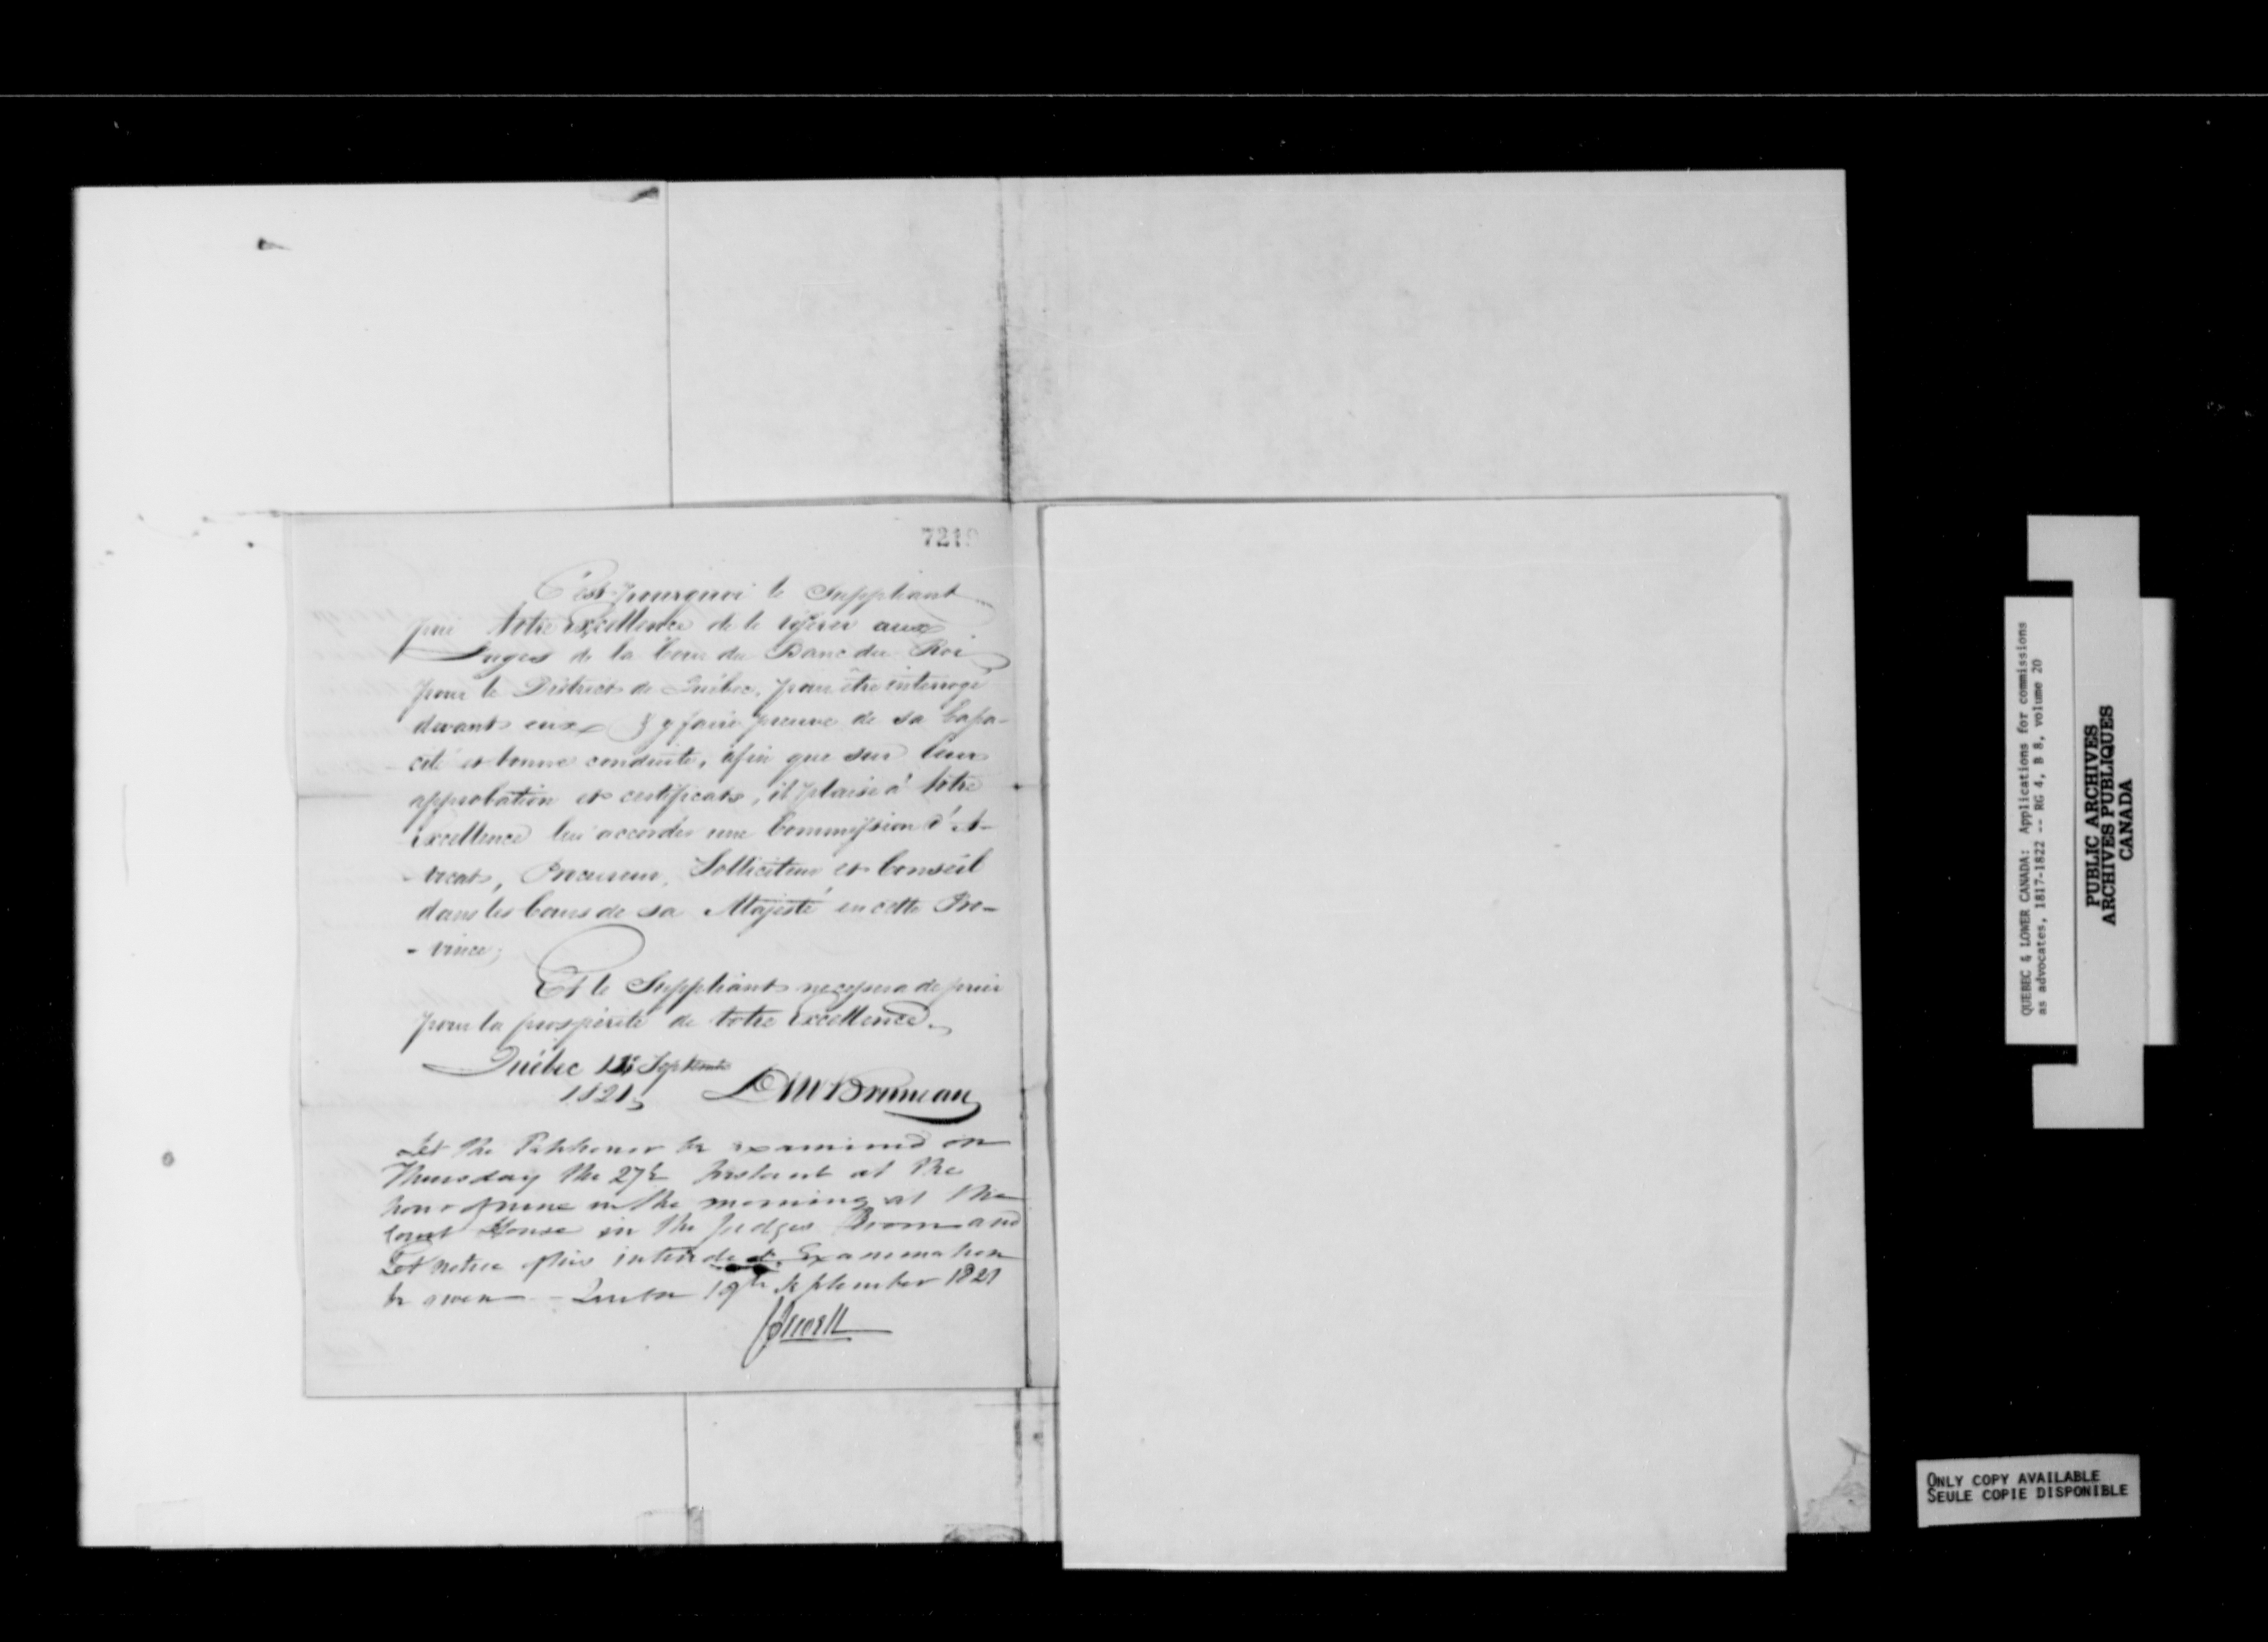 7219
C'est pourquoi le Suppliant
prie Votre Excellence de le référer aux
Juges de la Cour du Banc du Roi
pour le District de Québec, pour être interrogé
devant eux & y faire preuve de sa Capa-
cité et bonne conduite, afin que sur leur
approbation et certificats, il plaise à Votre
Excellence lui accorder une Commission d'A-
-vocat, Procureur, Solliciteur et Conseil
dans les Cours de sa Majesté en cette Pro-
-vince;
Et le Suppliant ne cessera de prier
pour la prospérité de Votre Excellence.
Québec Septembre
1821, Bruneau
Let the Petitioner be examined on
Thursday the 27th Instant at the
hour of nine in the morning at the
Court House in the Judges Room and
Let notice of this intended Examination
be given - Quebec 19th September 1821
JSewell
QUEBEC & LOWER CANADA: Applications for commissions
as advocates, 1817-1822 -- RG 4, B 8, volume 20
PUBLIC ARCHIVES
ARCHIVES PUBLIQUES
CANADA
ONLY COPY AVAILABLE
SEULE COPIE DISPONIBLE